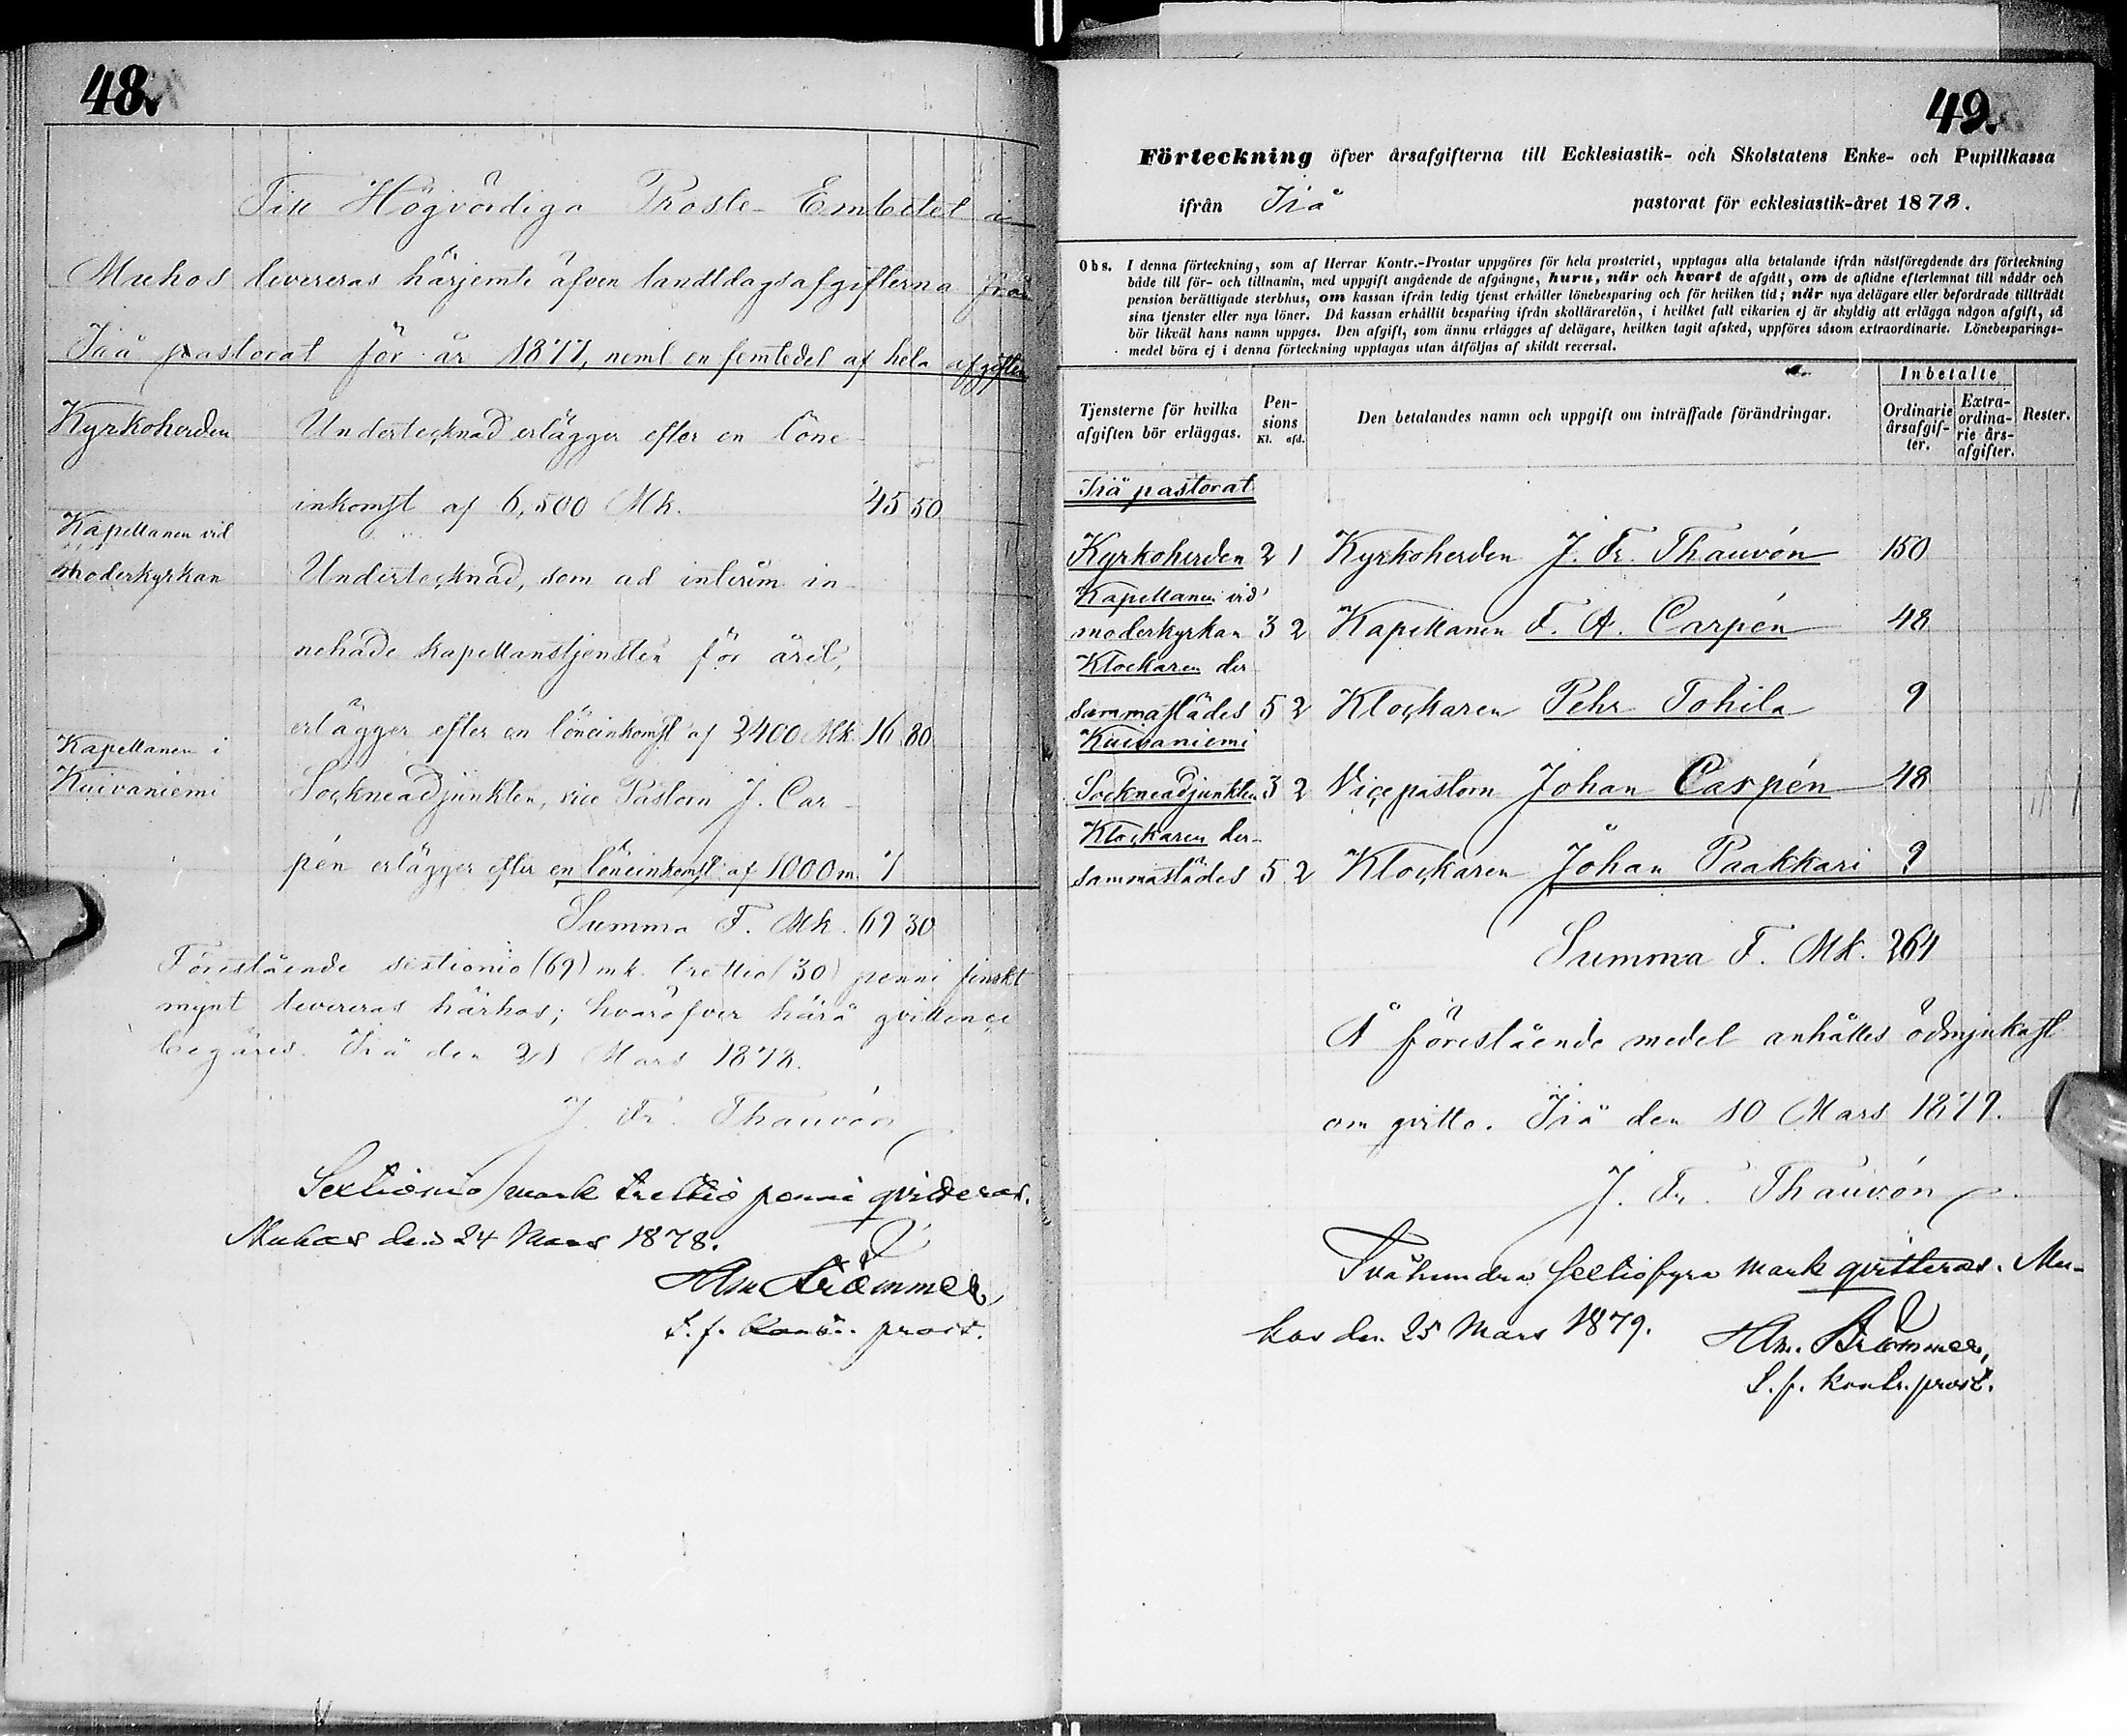 48.
Till Högvördiga Proste-Embetet i
Muhos levereras härjemte äfven landtdagsafgifterna från
Iiå pastorat för år 1877, neml en femtedel af hela afgiften
Kyrkoherden Undertecknad erlägger efter en löne
inkomst af 6,500 Mk. 45 50
Kapellanen vid
moderkyrkan Undertecknad, som ad interim in
nehade kapellanstjensten för året,
erlägger efter en löneinkomst af 2400 Mk. 16 80
Kapellanen i
Kuivaniemi Sockneadjunkten, vice Pastorn J. Car-
pén erlägger efter en löneinkomst af 1000 m. 7
Summa F. Mk. 69 30
Förestående sextionio (69) mk. trettio (30) penni finskt
mynt levereras härhos; hvaröfver härå qvittence
begäres. Iiå den 21 Mars 1878.
J. Fr. Thauvón
Sextionio mark trettio penni qvitteras.
Muhos den 24 Mars 1878.
Strömmer,
t. f. Kontr. prost.
49.
Förteckning öfver årsafgifterna till Ecklesiastik- och Skolstatens Enke- och Pupillkassa
ifrån Iiå pastorat för ecklesiastik-året 1878.
Obs. I denna förteckning, som af Herrar Kontr.-Prostar uppgöres för hela prosteriet, upptagas alla betalande ifrån nästföregående års förteckning
både till för- och tillnamn, med uppgift angående de afgångne, huru, när och hvart de afgått, om de aflidne efterlemnat till nådår och
pension berättigade sterbhus, om kassan ifrån ledig tjenst erhåller lönebesparing och för hvilken tid; når nya delägare eller befordrade tillträdt
sina tjenster eller nya löner. Då kassan erhållit besparing ifrån skollärarelön, i hvilket fall vikarien ej är skyldig att erlägga någon afgift, så
bör likväl hans namn uppges. Den afgift, som ännu erlägges af delägare, hvilken tagit afsked, uppföres såsom extraordinarie. Lönebesparings-
medel böra ej i denna förteckning upptagas utan åtföljas af skildt reversal.
Tjensterne för hvilka afgiften bör erläggas. Pensions Kl. afd. Den betalandes namn och uppgift om inträffade förändringar. Inbetalte Ordinarie årsafgifter. Extraordinarie årsafgifter. Rester.
Iiå pastorat
Kyrkoherden 2 1 Kyrkoherden J. Fr. Thauvón 150
Kapellanen vid
moderkyrkan 3 2 Kapellanen F. A. Carpén 48
Klockaren der
sammastädes 5 2 Klockaren Pehr Tohila 9
Kuivaniemi
Sockneadjunkten 3 2 Vicepastorn Johan Carpén 48
Klockaren der-
sammastädes 5 2 Klockaren Johan Paakkari 9
Summa F. Mk. 264
Å förestående medel anhålles ödmjukast
om qvitto. Iiå den 10 Mars 1879.
J. Fr. Thauvón
Tvåhundra sextiofyra mark qvitteras. Mu-
hos den 25 Mars 1879.
Strömmer,
t. f. kontr. prost.